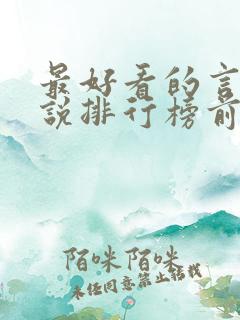 最好看的言
说排行榜前
陌咪陌咪
未经同意禁止转载